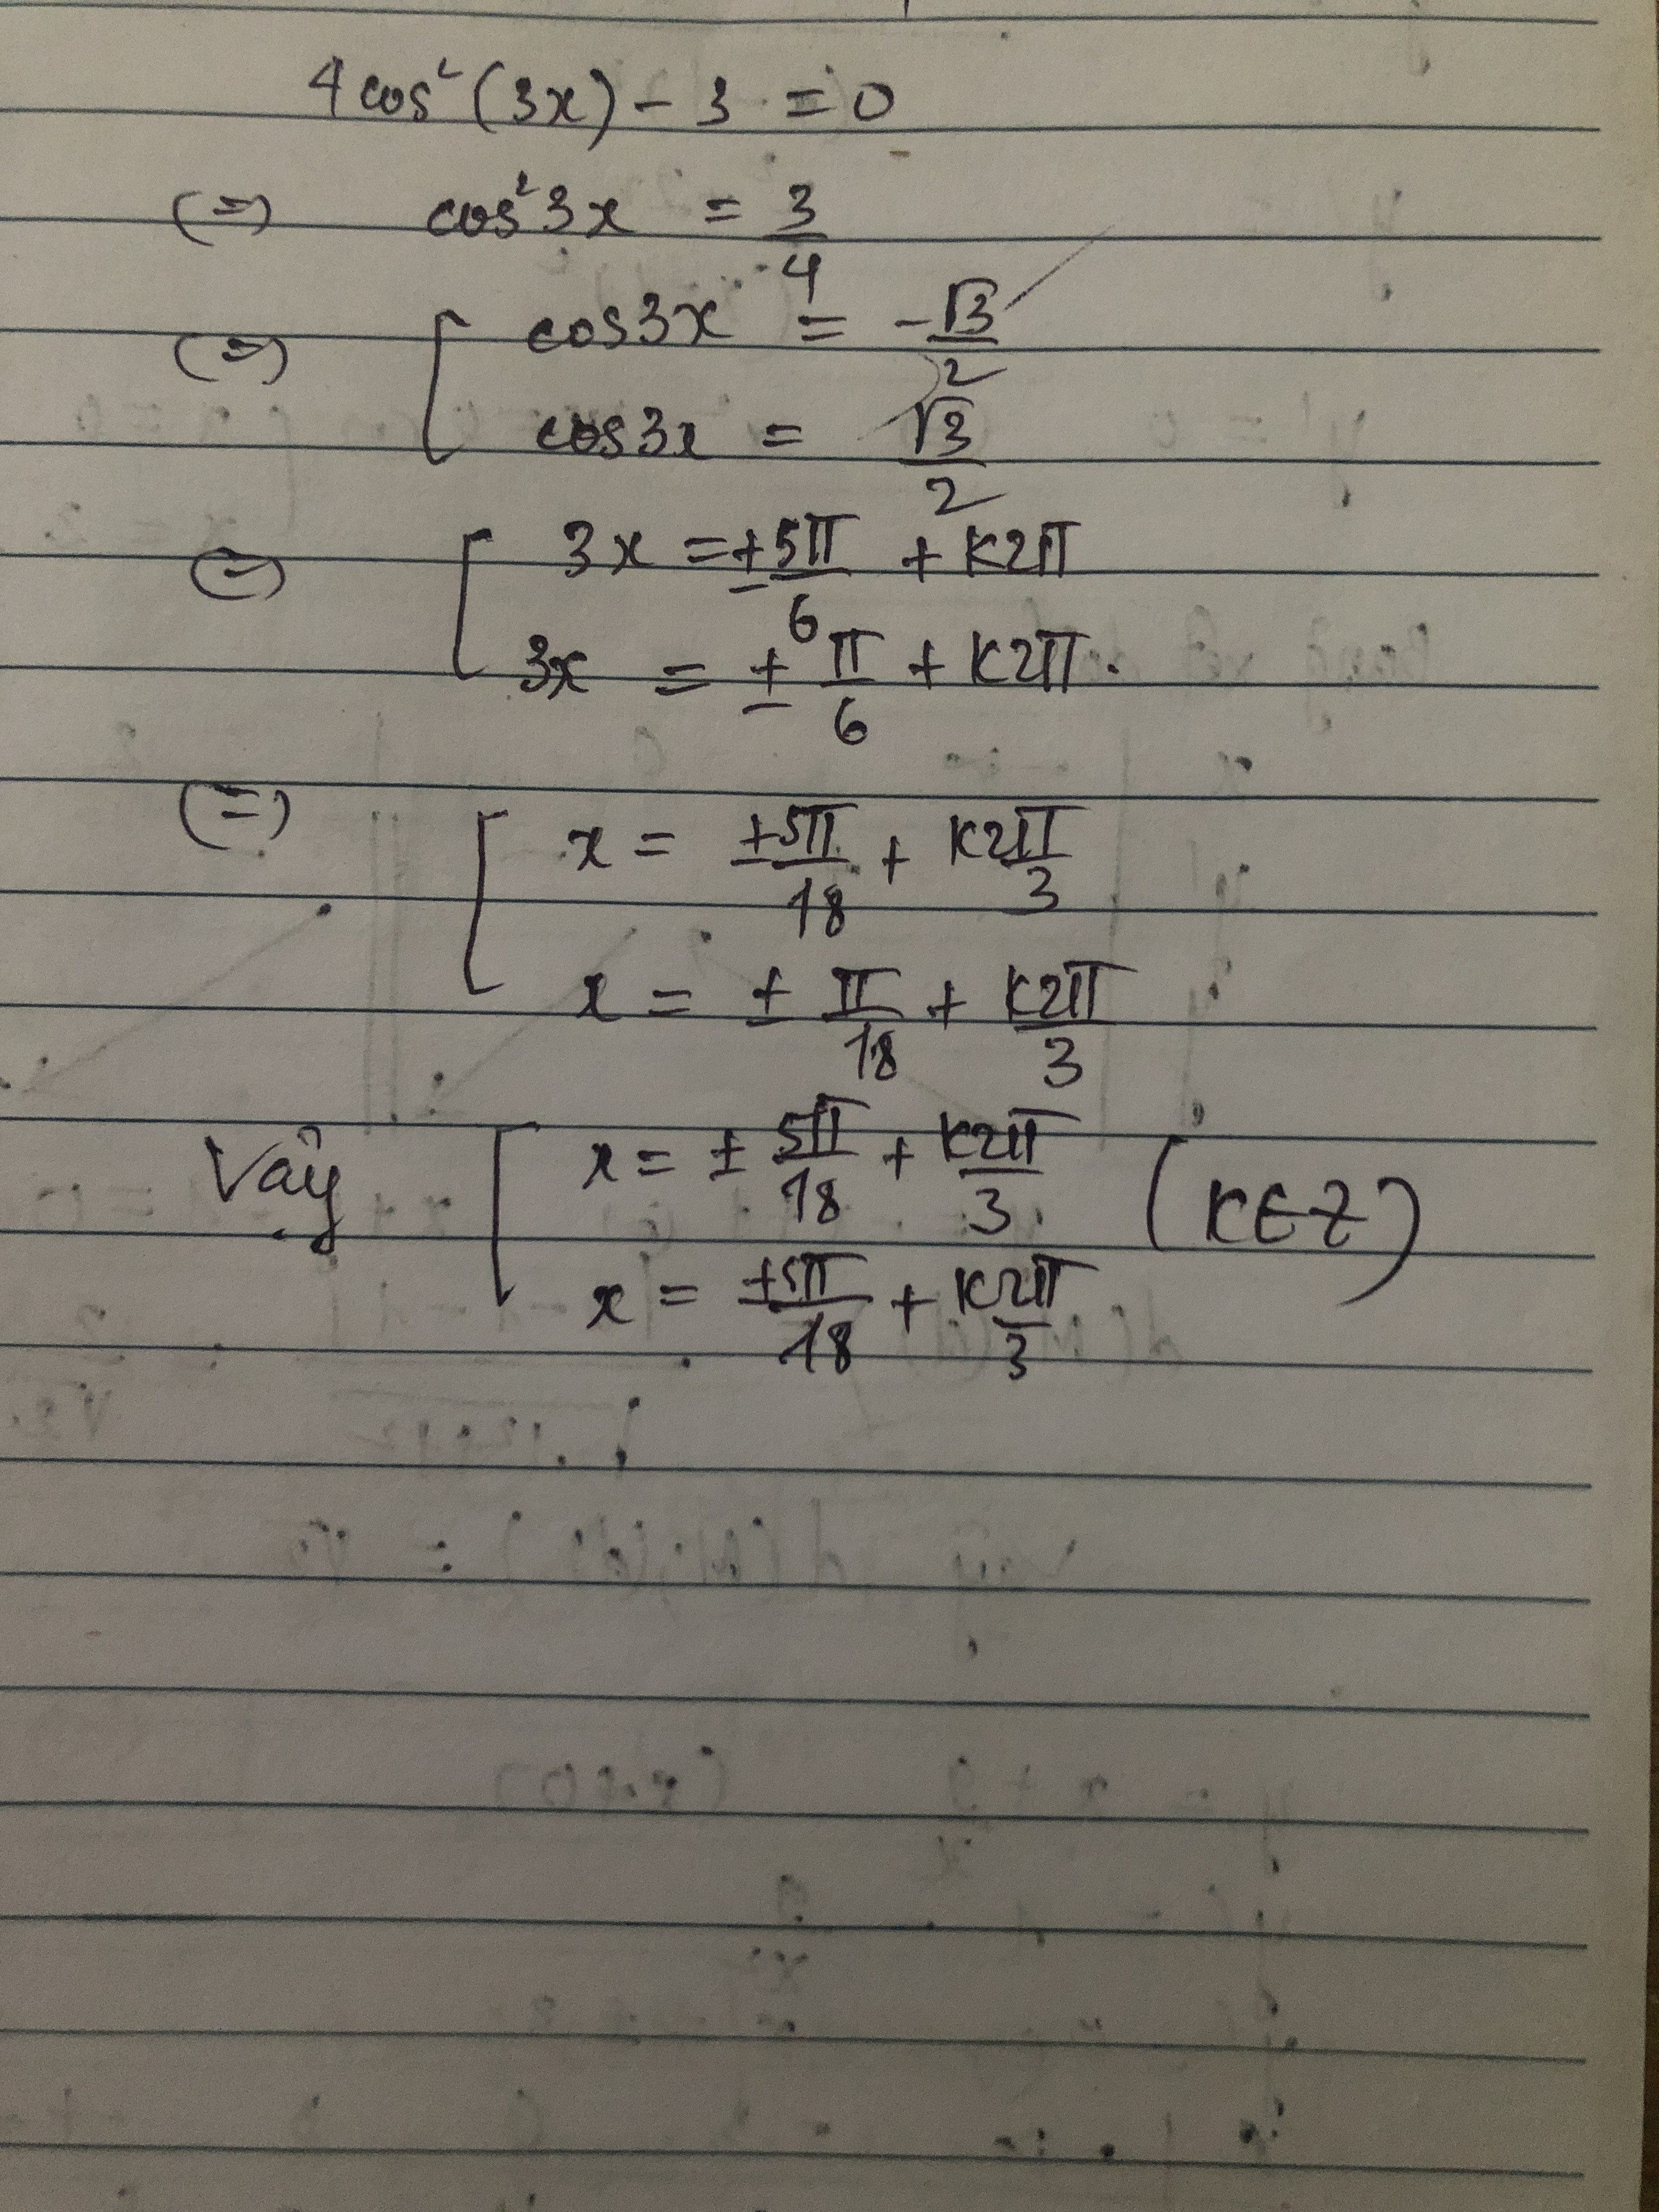 4cos²(3x) - 3 = 0
(=) cos²3x = 3/4
(=) [ cos3x = -√3/2
cos3x = √3/2
(=) [ 3x = ±5π/6 + k2π
3x = ± π/6 + k2π.
(=) [ x = ±5π/18 + k2π/3
x = ± π/18 + k2π/3
Vậy [ x = ± 5π/18 + k2π/3 (k∈Z)
x = ±5π/18 + k2π/3